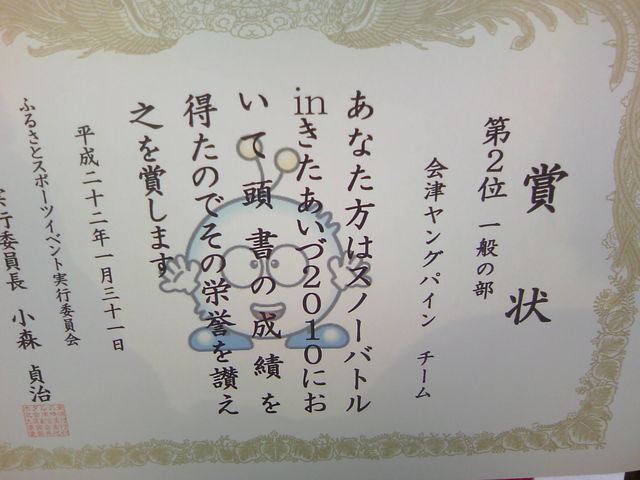 賞状
第2位 一般の部
会津ヤングパイン チーム
あなた方はスノーバトル
inきたあいづ2010にお
いて頭書の成績を
得たのでその栄誉を讃え
之を賞します
平成二十二年一月三十一日
ふるさとスポーツイベント実行委員会
実行委員長 小森 貞治